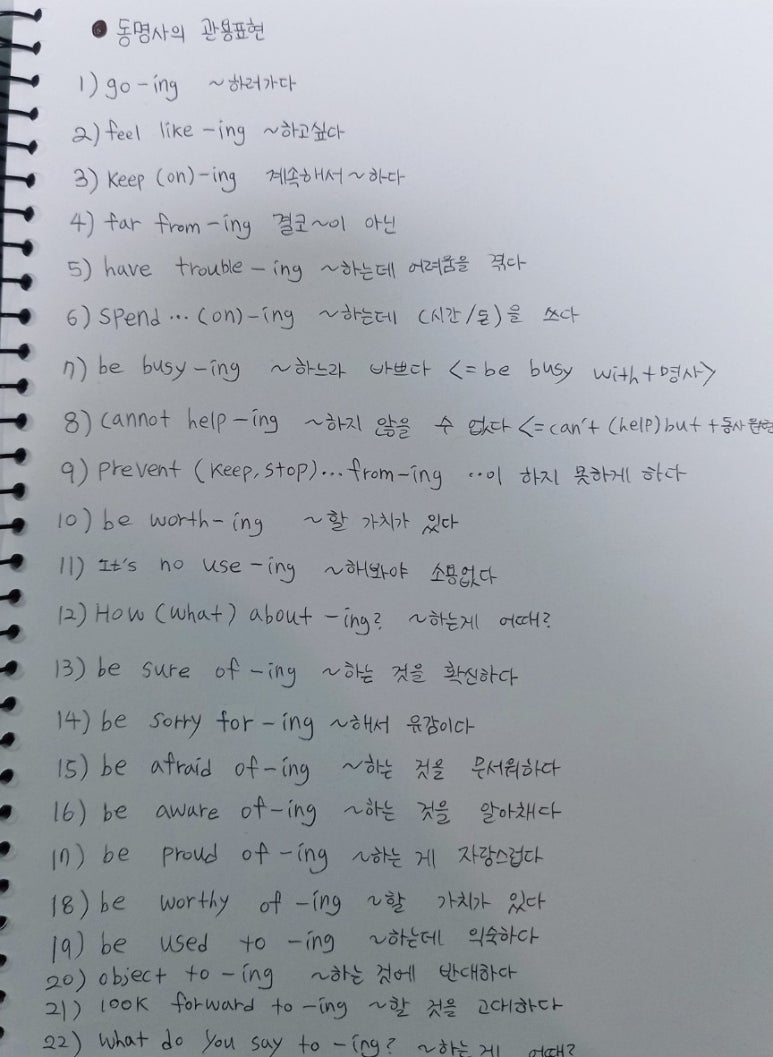 ● 동명사의 관용표현
1) go -ing ~하러가다
2) feel like -ing ~하고싶다
3) keep (on) -ing 계속해서 ~하다
4) far from -ing 결코~이 아닌
5) have trouble -ing ~하는데 어려움을 겪다
6) spend … (on) -ing ~하는데 (시간/돈)을 쓰다
7) be busy -ing ~하느라 바쁘다 <= be busy with + 명사>
8) cannot help -ing ~하지 않을 수 없다 <= can't (help) but + 동사원형
9) prevent (keep, stop) … from -ing ‥이 하지 못하게 하다
10) be worth -ing ~할 가치가 있다
11) It's no use -ing ~해봐야 소용없다
12) How (what) about -ing? ~하는게 어때?
13) be sure of -ing ~하는 것을 확신하다
14) be sorry for -ing ~해서 유감이다
15) be afraid of -ing ~하는 것을 무서워하다
16) be aware of -ing ~하는 것을 알아채다
17) be proud of -ing ~하는 게 자랑스럽다
18) be worthy of -ing ~할 가치가 있다
19) be used to -ing ~하는데 익숙하다
20) object to -ing ~하는 것에 반대하다
21) look forward to -ing ~할 것을 고대하다
22) what do you say to -ing? ~하는 게 어때?